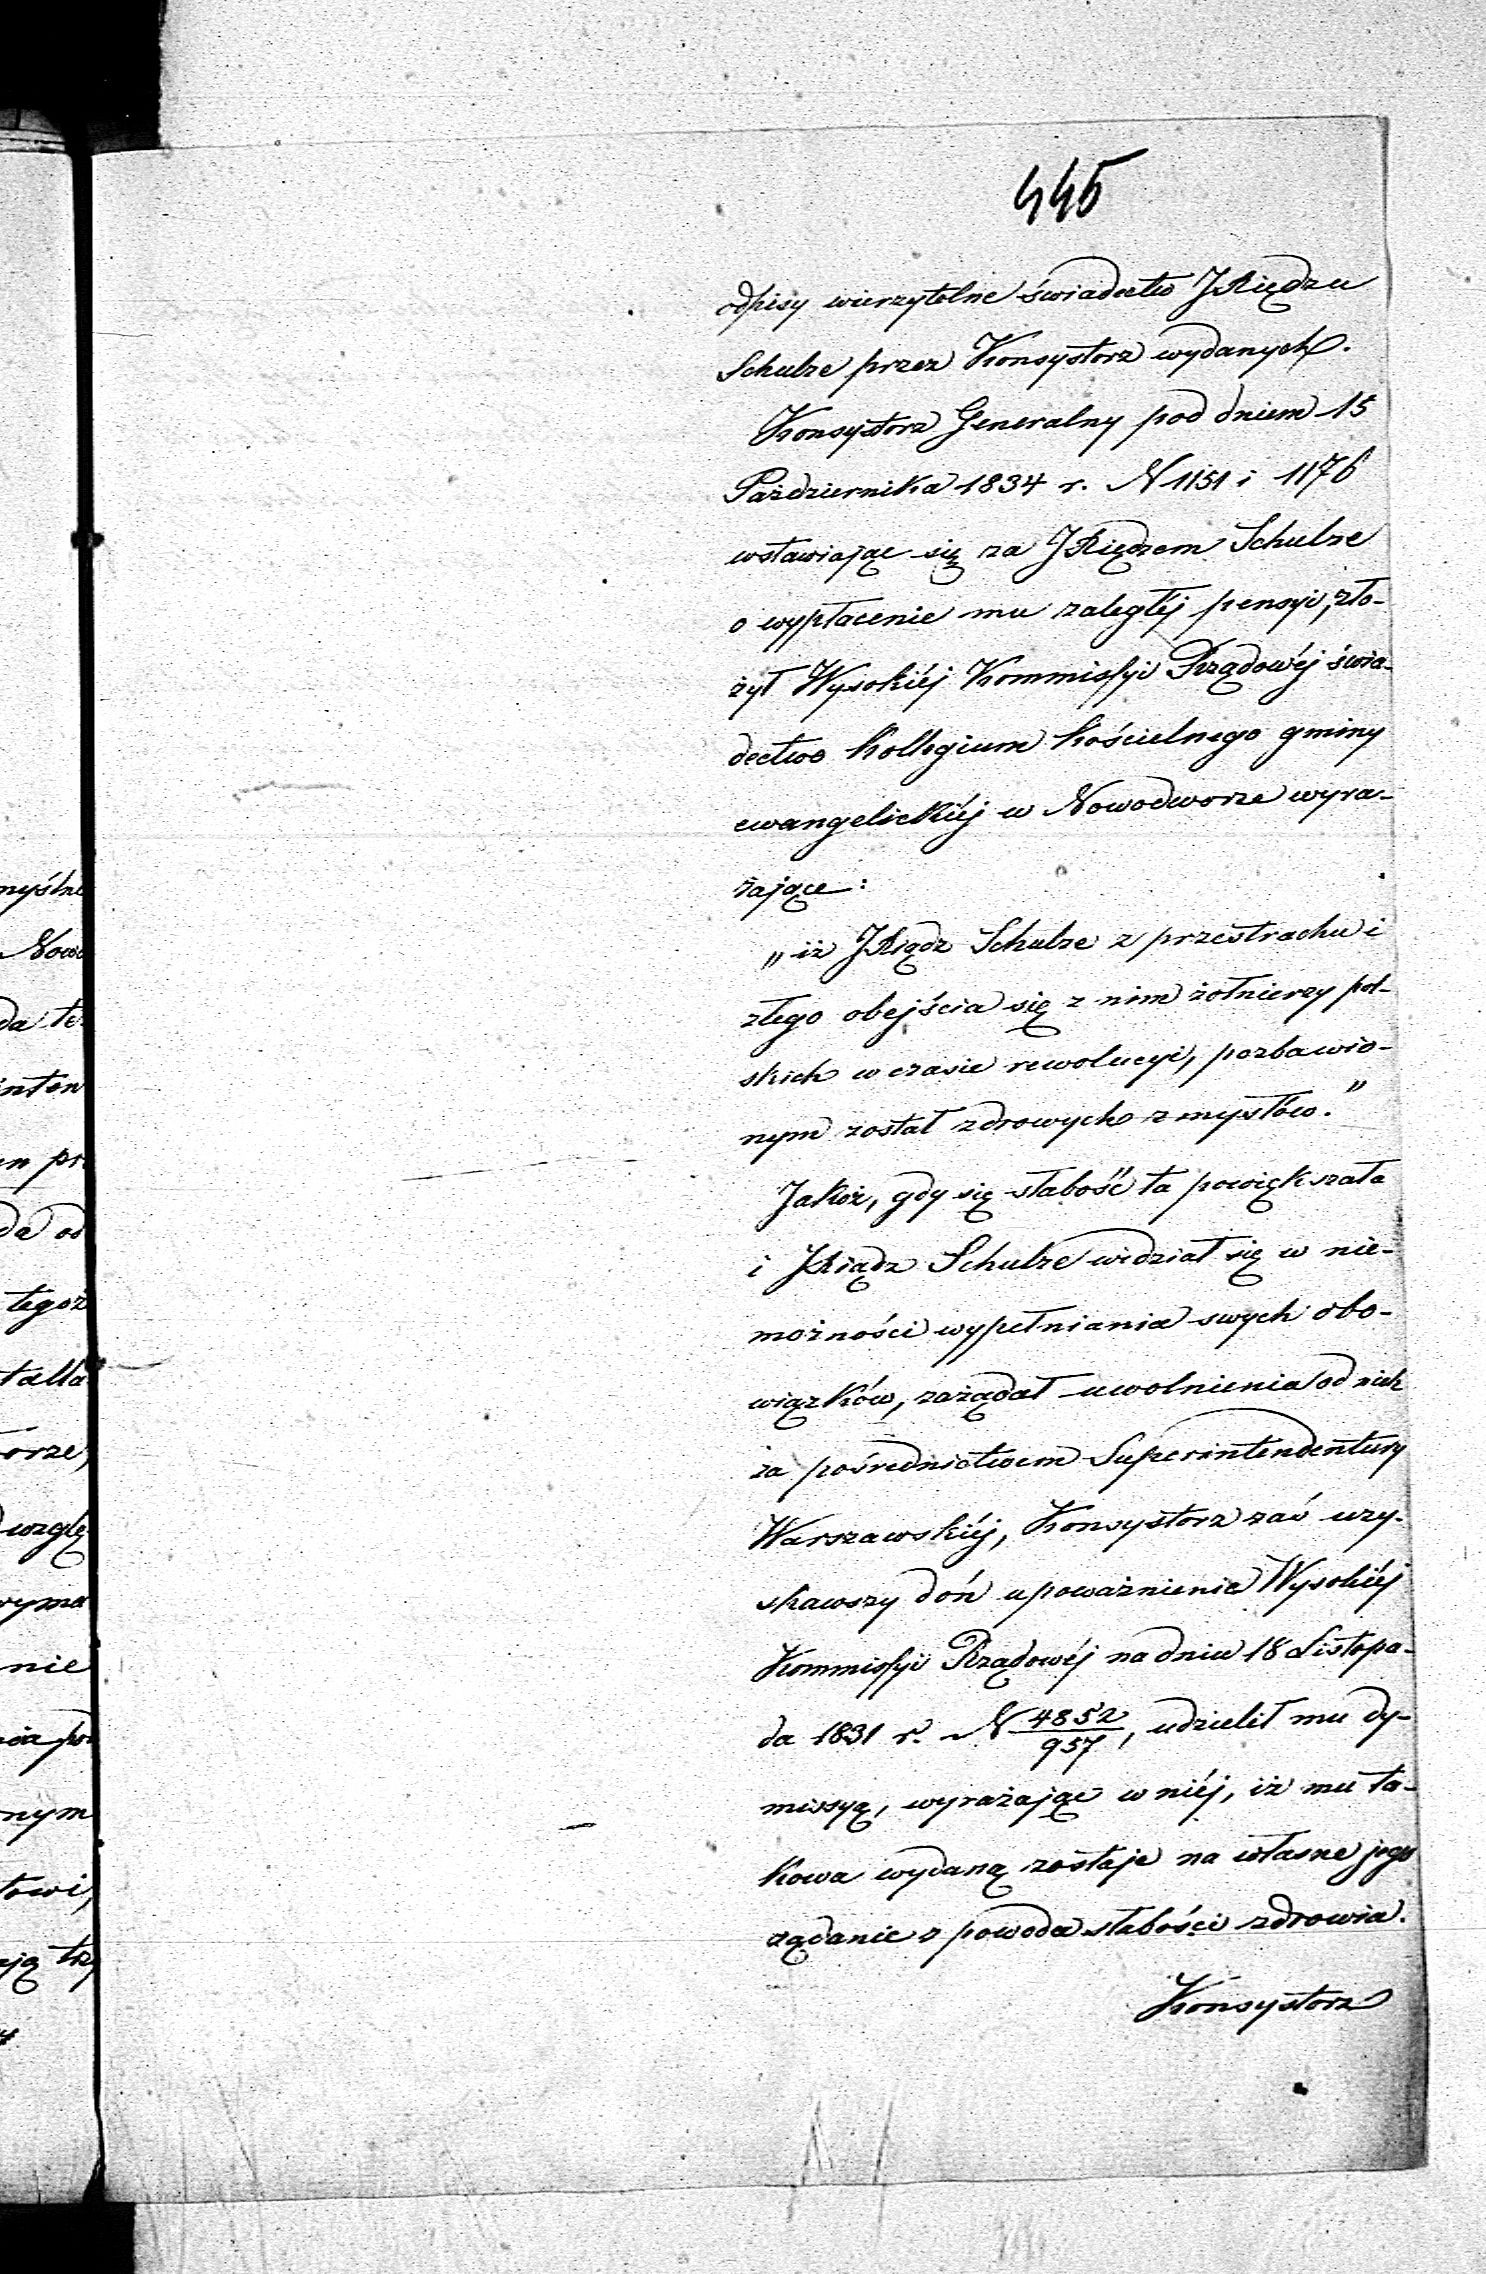 445
odpisy wierzytelne świadectw JXiędzu
Schulze przez Konsystorz wydanych.
Konsystorz Generalny pod dniem 15
Października 1834 r. N 1151 i 1176
wstawiając się za JXiędzem Schulze
o wypłacenie mu zaległéj pensyi, zło-
żył Wysokiéj Kommissyi Rządowéj świa-
dectwo Kollegium Kościelnego gminy
ewangelickiéj w Nowodworze wyra-
żające:
„iż JXiądz Schulze z przestrachu i
złego obejścia się z nim żołnierzy pol-
skich w czasie rewolucyi, pozbawio-
nym został zdrowych zmysłów."
Jakoż, gdy się słabość ta powiększała
i JXiądz Schulze widział się w nie-
możności wypełniania swych obo-
wiązków, zażądał uwolnienia od nich
za pośrednictwem Superintendentury
Warszawskiéj, Konsystorz zaś uzy-
skawszy doń upoważnienie Wysokiéj
Kommissyi Rządowéj na dniu 18 Listopa-
da 1831 r. N 4852/957, udzielił mu dy-
missyą, wyrażając w niéj, iż mu ta-
kowa wydaną zostaje na własne jego
żądanie z powodu słabości zdrowia.
Konsystorz
myślne
Nowo
da te
inten
pr
da od
tegoż
talla
orze,
wzglę
wyma
nie
nym
towi,
ją trz